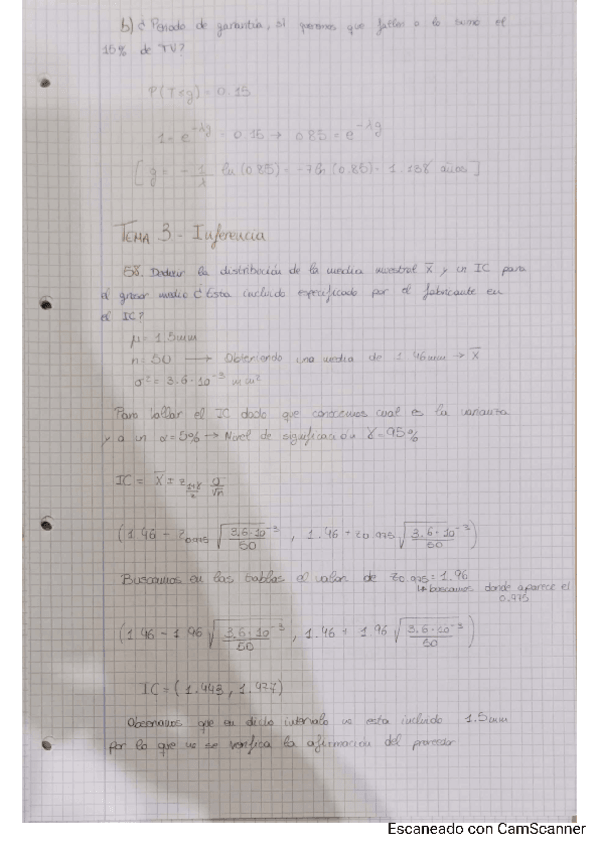 b) ¿ Periodo de garantía, si queremos que fallen a lo sumo el
15% de TV?
P(T<g) = 0.15
1 - e^-λg = 0.15 → 0.85 = e^-λg
[ g = - 1/λ ln (0.85) = -7 ln (0.85) = 1.138 años ]
TEMA 3 - Inferencia
58. Deducir la distribución de la media muestral X̄ y un IC para
el grosor medio ¿Esta incluido especificado por el fabricante en
el IC?
μ = 1.5mm
n = 50 → Obteniendo una media de 1.46mm → X̄
σ² = 3.6·10^-3 mm²
Para hallar el IC dado que conocemos cual es la varianza
y a un α = 5% → Nivel de significación γ = 95%
IC = X̄ ± z_(1+γ)/2 σ/√n
(1.46 - z0.975 √(3.6·10^-3/50) , 1.46 + z0.975 √(3.6·10^-3/50))
Buscamos en las tablas el valor de z0.975 = 1.96
↳ buscamos donde aparece el
0.975
(1.46 - 1.96 √(3.6·10^-3/50) , 1.46 + 1.96 √(3.6·10^-3/50))
IC = (1.443, 1.477)
Observamos que en dicho intervalo no esta incluido 1.5mm
por lo que no se verifica la afirmación del proveedor
Escaneado con CamScanner